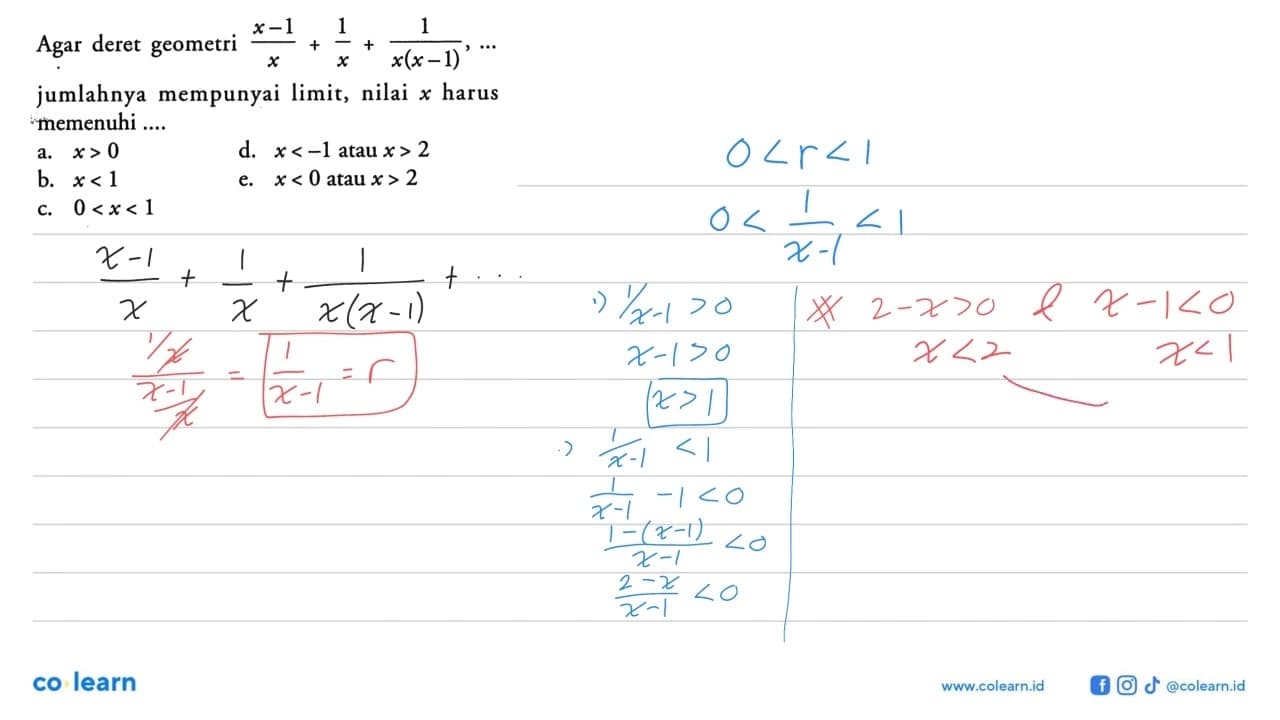 Agar deret geometri (x-1)/x + 1/x + 1/(x(x-1)), ...
jumlahnya mempunyai limit, nilai x harus
memenuhi ....
a. x > 0
b. x < 1
c. 0 < x < 1
d. x < -1 atau x > 2
e. x < 0 atau x > 2
(x-1)/x + 1/x + 1/(x(x-1)) + ...
(1/x)/((x-1)/x) = 1/(x-1) = r
0 < r < 1
0 < 1/(x-1) < 1
·) 1/(x-1) > 0
x-1 > 0
x > 1
·) 1/(x-1) < 1
1/(x-1) - 1 < 0
(1-(x-1))/(x-1) < 0
(2-x)/(x-1) < 0
2-x > 0 & x-1 < 0
x < 2 x < 1
co learn
www.colearn.id
@colearn.id